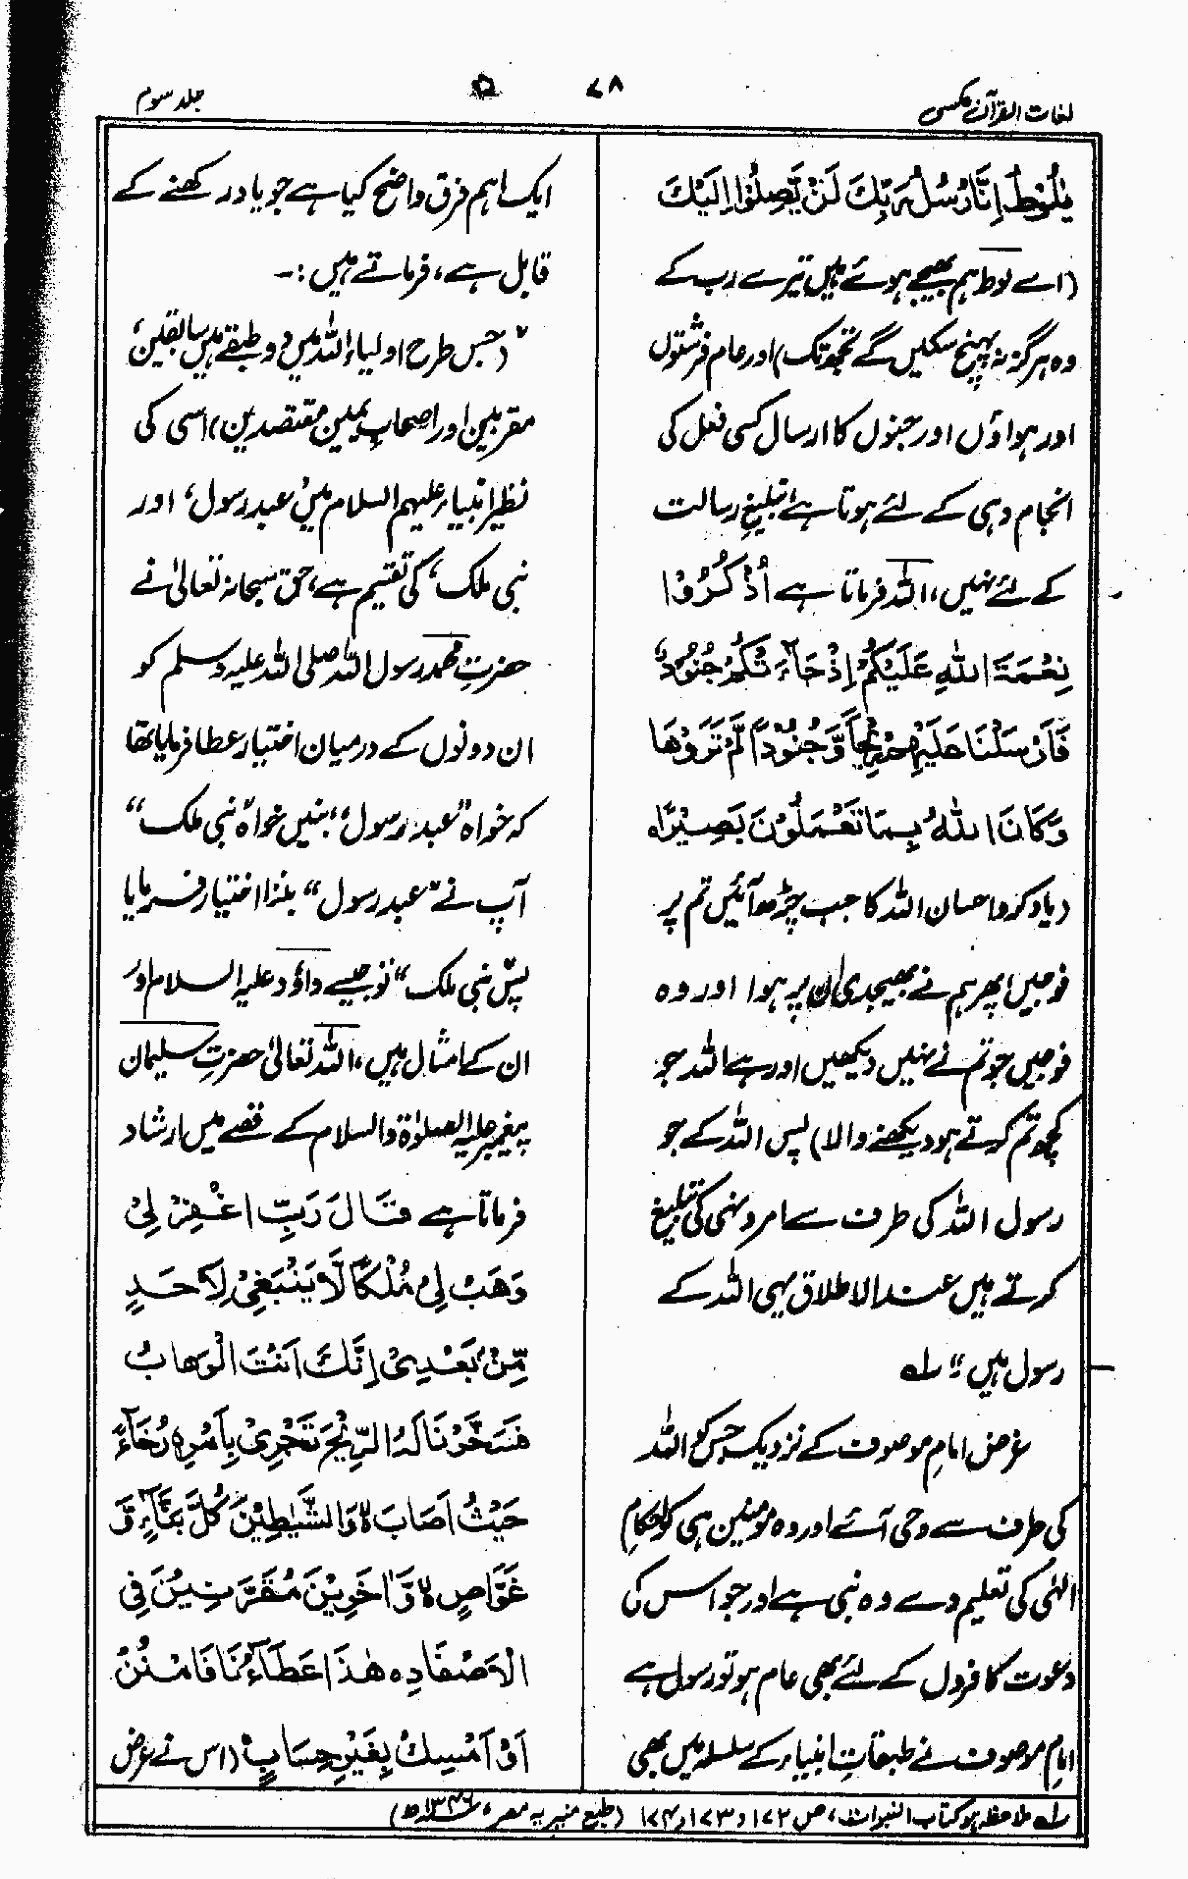 لغات القرآن عکسی
۷۸
جلد سوم
يٰلُوْطُ اِنَّا رُسُلُ رَبِّكَ لَنْ يَّصِلُوْا اِلَيْكَ
(اے لوط ہم بھیجے ہوئے ہیں تیرے رب کے
وہ ہرگز نہ پہنچ سکیں گے تجھ تک) اور عام فرشتوں
اور ہواؤں اور جنوں کا ارسال کسی فعل کی
انجام دہی کے لئے ہوتا ہے تبلیغِ رسالت
کے لئے نہیں، اللہ فرماتا ہے اُذْكُرُوْا
نِعْمَةَ اللهِ عَلَيْكُمْ اِذْ جَآءَ تْكُمْ جُنُوْدٌ
فَاَرْسَلْنَا عَلَيْهِمْ رِيْحًا وَّجُنُوْدًا لَّمْ تَرَوْهَا
وَكَانَ اللهُ بِمَا تَعْمَلُوْنَ بَصِيْرًا ه
(یاد کرو احسان اللہ کا جب چڑھ آئیں تم پر
فوجیں پھر ہم نے بھیجدی ان پر ہوا اور وہ
فوجیں جو تم نے نہیں دیکھیں اور ہے اللہ جو
کچھ تم کرتے ہو دیکھنے والا) پس اللہ کے جو
رسول اللہ کی طرف سے امر و نہی کی تبلیغ
کرتے ہیں عند الاطلاق یہی اللہ کے
رسول ہیں۔" لہ
غرض امامِ موصوف کے نزدیک جس کو اللہ
کی طرف سے وحی آئے اور وہ مومنین ہی کو احکامِ
الٰہی کی تعلیم دے وہ نبی ہے اور جو اس کی
دعوت کافروں کے لئے بھی عام ہو تو رسول ہے
امامِ موصوف نے طبقاتِ انبیاء کے سلسلہ میں بھی
ایک اہم فرق واضح کیا ہے جو یاد رکھنے کے
قابل ہے، فرماتے ہیں :-
"(جس طرح اولیاء اللہ میں دو طبقے ہیں سابقین،
مقربین اور اصحابِ یمین مقتصدین) اسی کی
نظیر انبیاء علیہم السلام میں عبد رسول، اور
نبی ملک، کی تقسیم ہے، حق سبحانہ تعالیٰ نے
حضرتِ محمد رسول اللہ صلی اللہ علیہ وسلم کو
ان دونوں کے درمیان اختیار عطا فرمایا تھا
کہ خواہ "عبد رسول" بنیں خواہ "نبی ملک"
آپ نے "عبد رسول" بننا اختیار فرمایا
پس نبی ملک" تو جیسے داؤد علیہ السلام اور
ان کے امثال ہیں، اللہ تعالیٰ حضرتِ سلیمان
پیغمبر علیہ الصلوٰة والسلام کے قصے میں ارشاد
فرماتا ہے قَالَ رَبِّ اغْفِرْ لِیْ
وَهَبْ لِیْ مُلْكًا لَّا يَنْبَغِیْ لِاَحَدٍ
مِّنْۢ بَعْدِیْ اِنَّكَ اَنْتَ الْوَهَّابُ
فَسَخَّرْنَا لَهُ الرِّيْحَ تَجْرِیْ بِاَمْرِهٖ رُخَآءً
حَيْثُ اَصَابَ ه وَالشَّيٰطِيْنَ كُلَّ بَنَّآءٍ وَّ
غَوَّاصٍ ه وَّاٰخَرِيْنَ مُقَرَّنِيْنَ فِی
الْاَصْفَادِ ه هٰذَا عَطَآؤُنَا فَامْنُنْ
اَوْ اَمْسِكْ بِغَيْرِ حِسَابٍ (اس نے عرض
لہ ملاحظہ ہو کتاب النبوات، ص ۱۷۲ و ۱۷۳ و ۱۷۴ (طبع منیریہ مصر، ۱۳۴۶ھ)